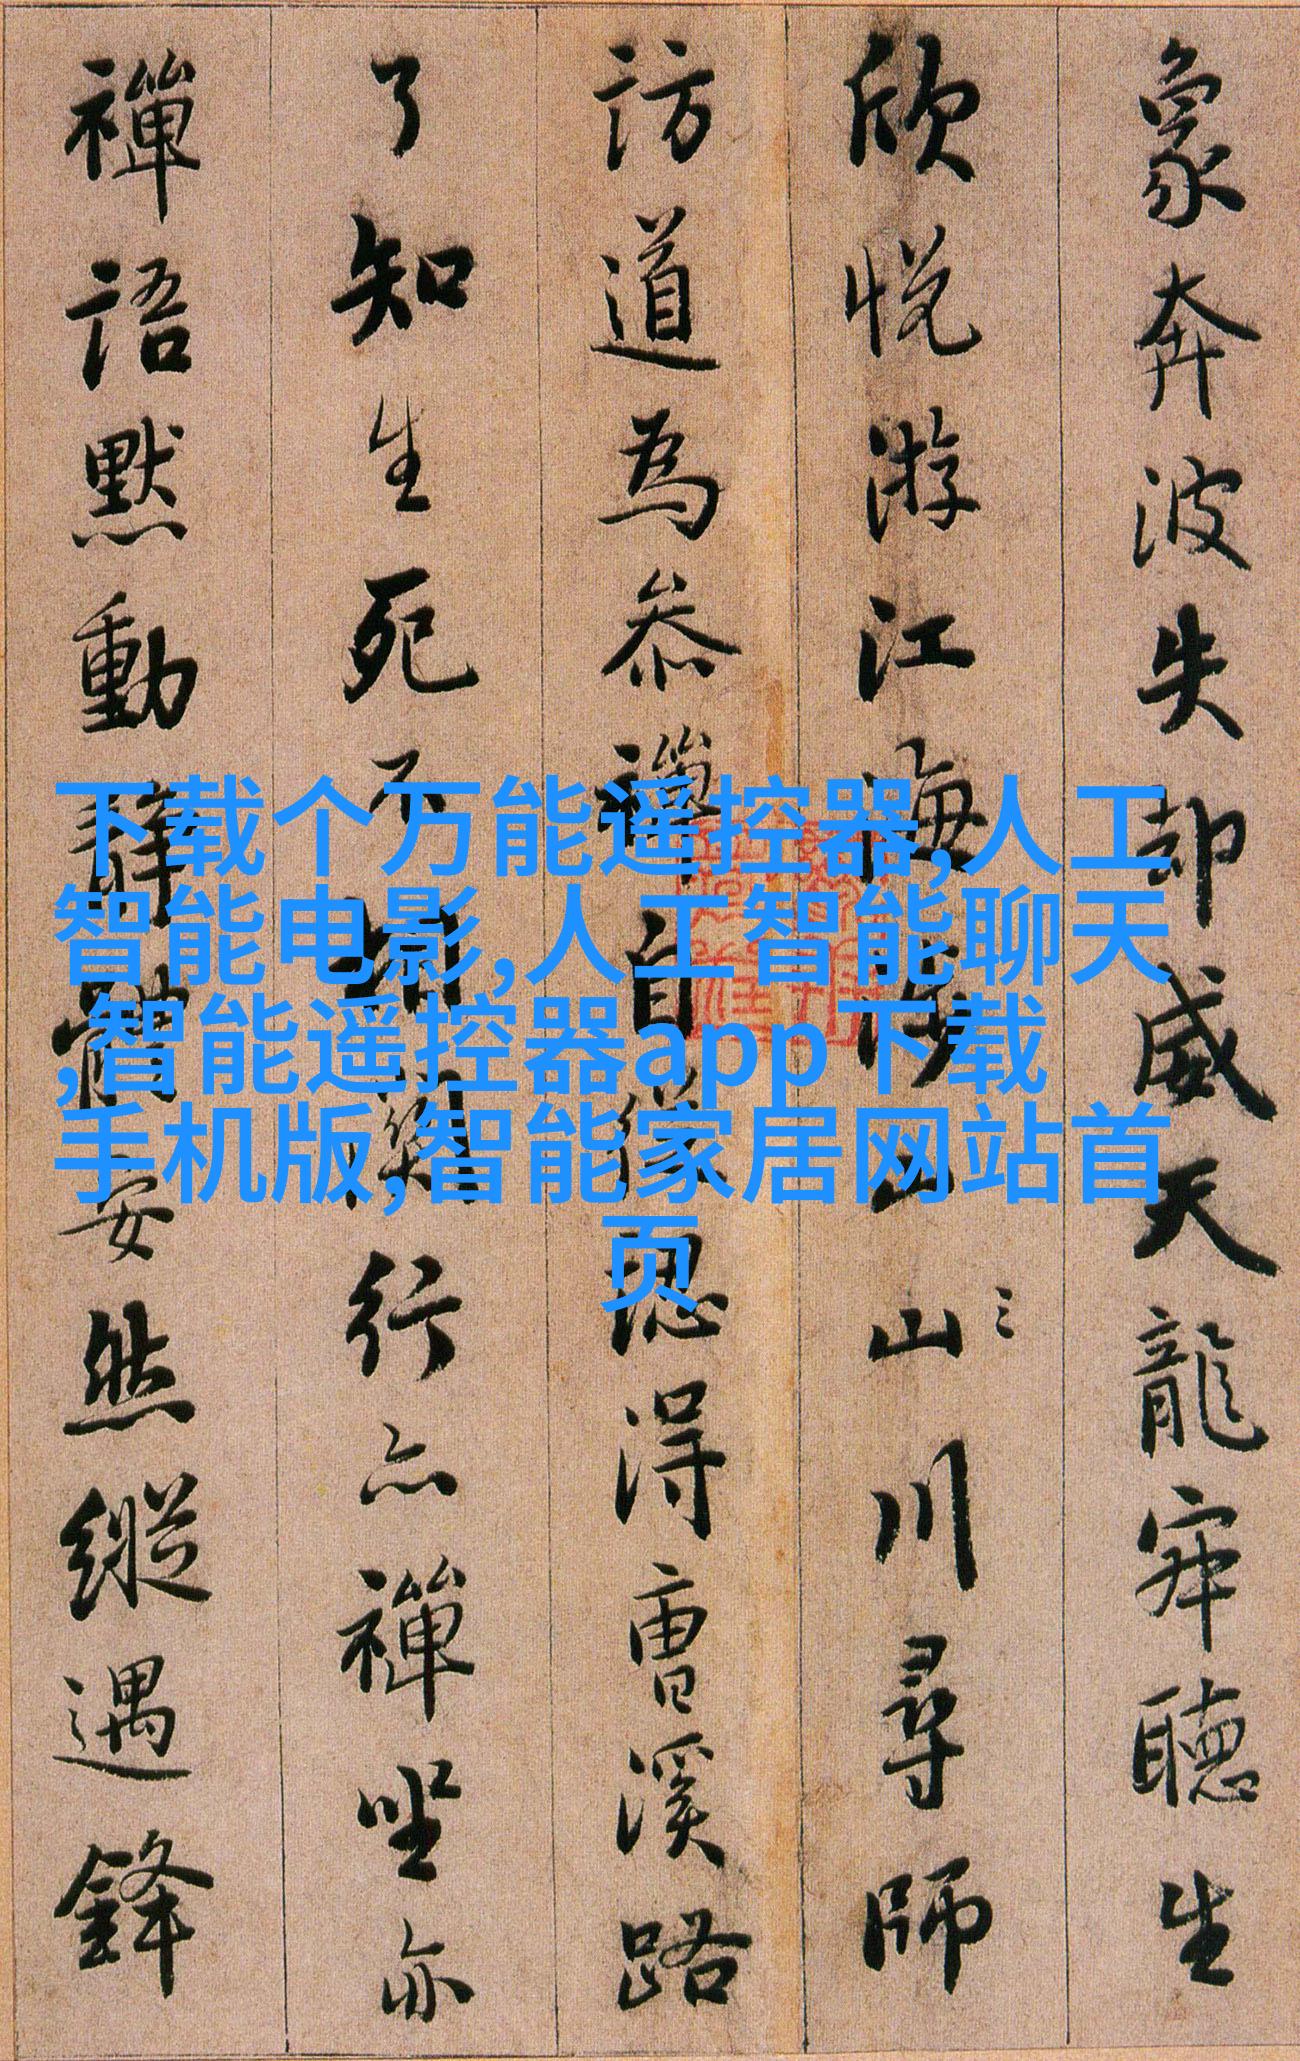 象奔波失却威天龍寂聽生
欣悦游江海涉山川尋師
訪道為參禪自從認得曹溪路
了知生死不相關行亦禪坐亦
禪語默動靜體安然縱遇鋒
下载个万能遥控器,人工
智能电影,人工智能聊天
,智能遥控器app下载
手机版,智能家居网站首
页